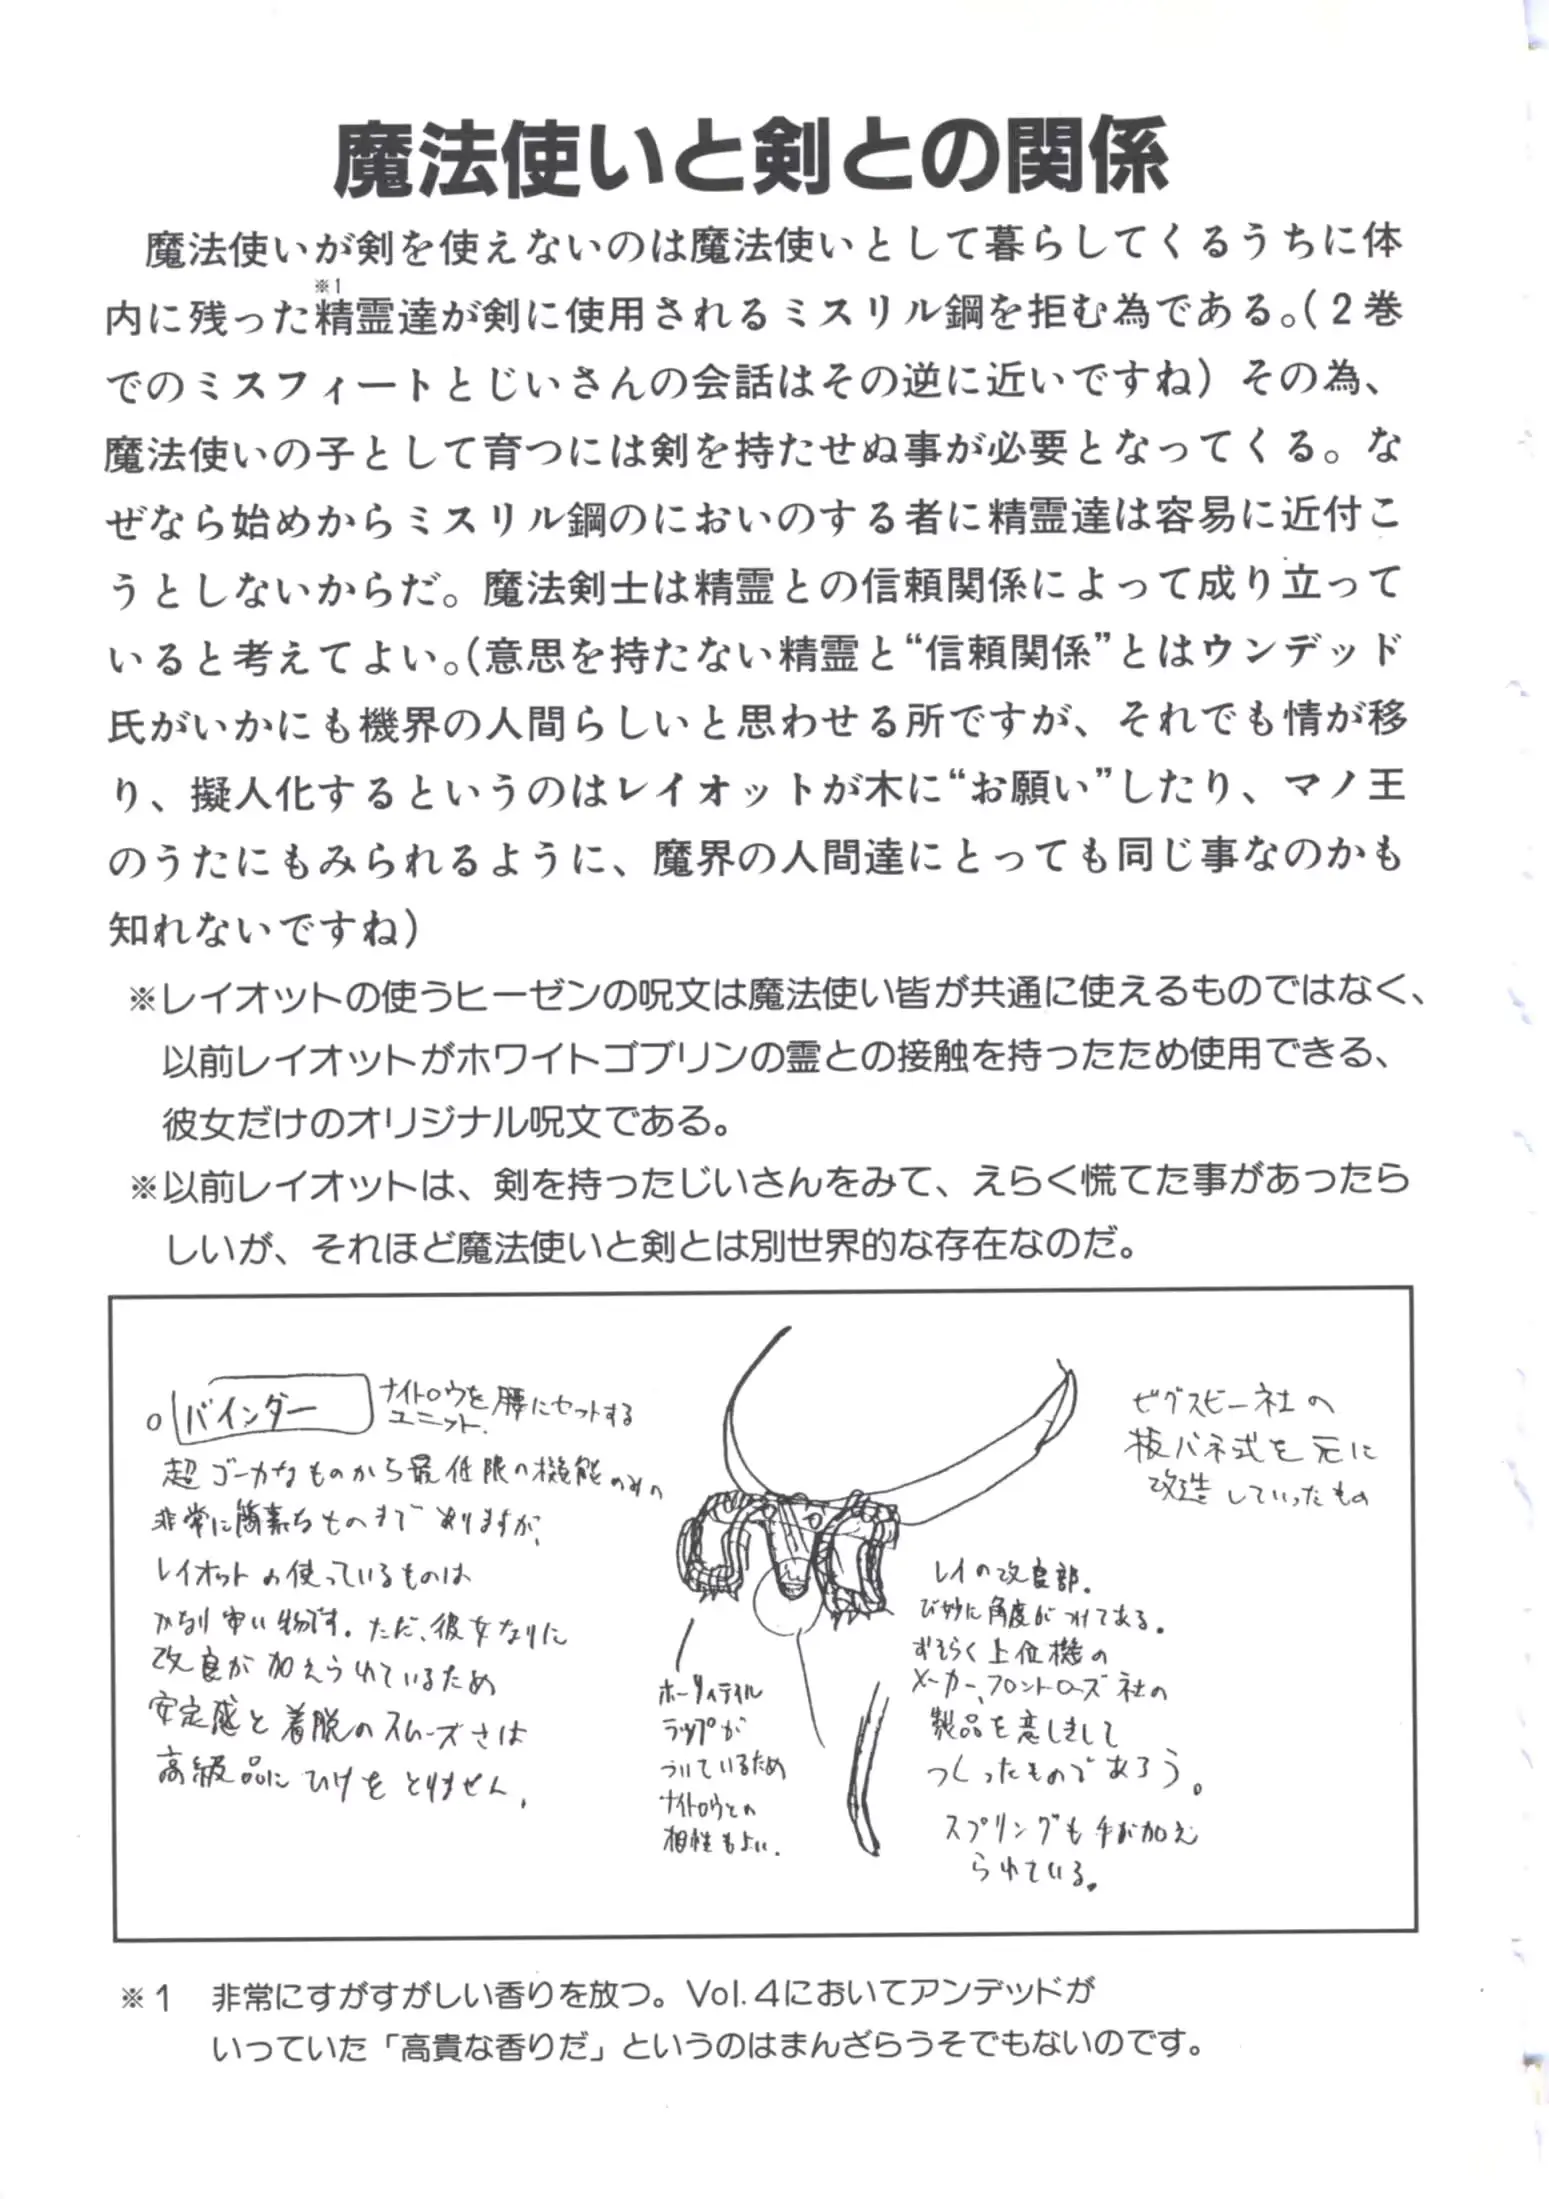 魔法使いと剣との関係
魔法使いが剣を使えないのは魔法使いとして暮らしてくるうちに体
※1
内に残った精霊達が剣に使用されるミスリル鋼を拒む為である。(2巻
でのミスフィートとじいさんの会話はその逆に近いですね) その為、
魔法使いの子として育つには剣を持たせぬ事が必要となってくる。な
ぜなら始めからミスリル鋼のにおいのする者に精霊達は容易に近付こ
うとしないからだ。魔法剣士は精霊との信頼関係によって成り立って
いると考えてよい。(意思を持たない精霊と“信頼関係”とはウンデッド
氏がいかにも機界の人間らしいと思わせる所ですが、それでも情が移
り、擬人化するというのはレイオットが木に“お願い”したり、マノ王
のうたにもみられるように、魔界の人間達にとっても同じ事なのかも
知れないですね)
※レイオットの使うヒーゼンの呪文は魔法使い皆が共通に使えるものではなく、
以前レイオットがホワイトゴブリンの霊との接触を持ったため使用できる、
彼女だけのオリジナル呪文である。
※以前レイオットは、剣を持ったじいさんをみて、えらく慌てた事があったら
しいが、それほど魔法使いと剣とは別世界的な存在なのだ。
○バインダー
ナイトロウを腰にセットする
ユニット.
超ゴーカなものから最低限の機能のみの
非常に簡素なものまでありますが、
レイオットの使っているものは
かなり安い物です。ただ、彼女なりに
改良が加えられているため
安定感と着脱のスムーズさは
高級品にひけをとりません.
ホーリィテイル
ラップが
ついているため
ナイトロウとの
相性もよい.
ゼグスビー社の
板バネ式を元に
改造していったもの
レイの改良部.
び妙に角度がつけてある。
おそらく上位機の
メーカー、フロントローズ社の
製品を意しきして
つくったものであろう。
スプリングも手が加え
られている。
※1 非常にすがすがしい香りを放つ。Vol.4においてアンデッドが
いっていた「高貴な香りだ」というのはまんざらうそでもないのです。